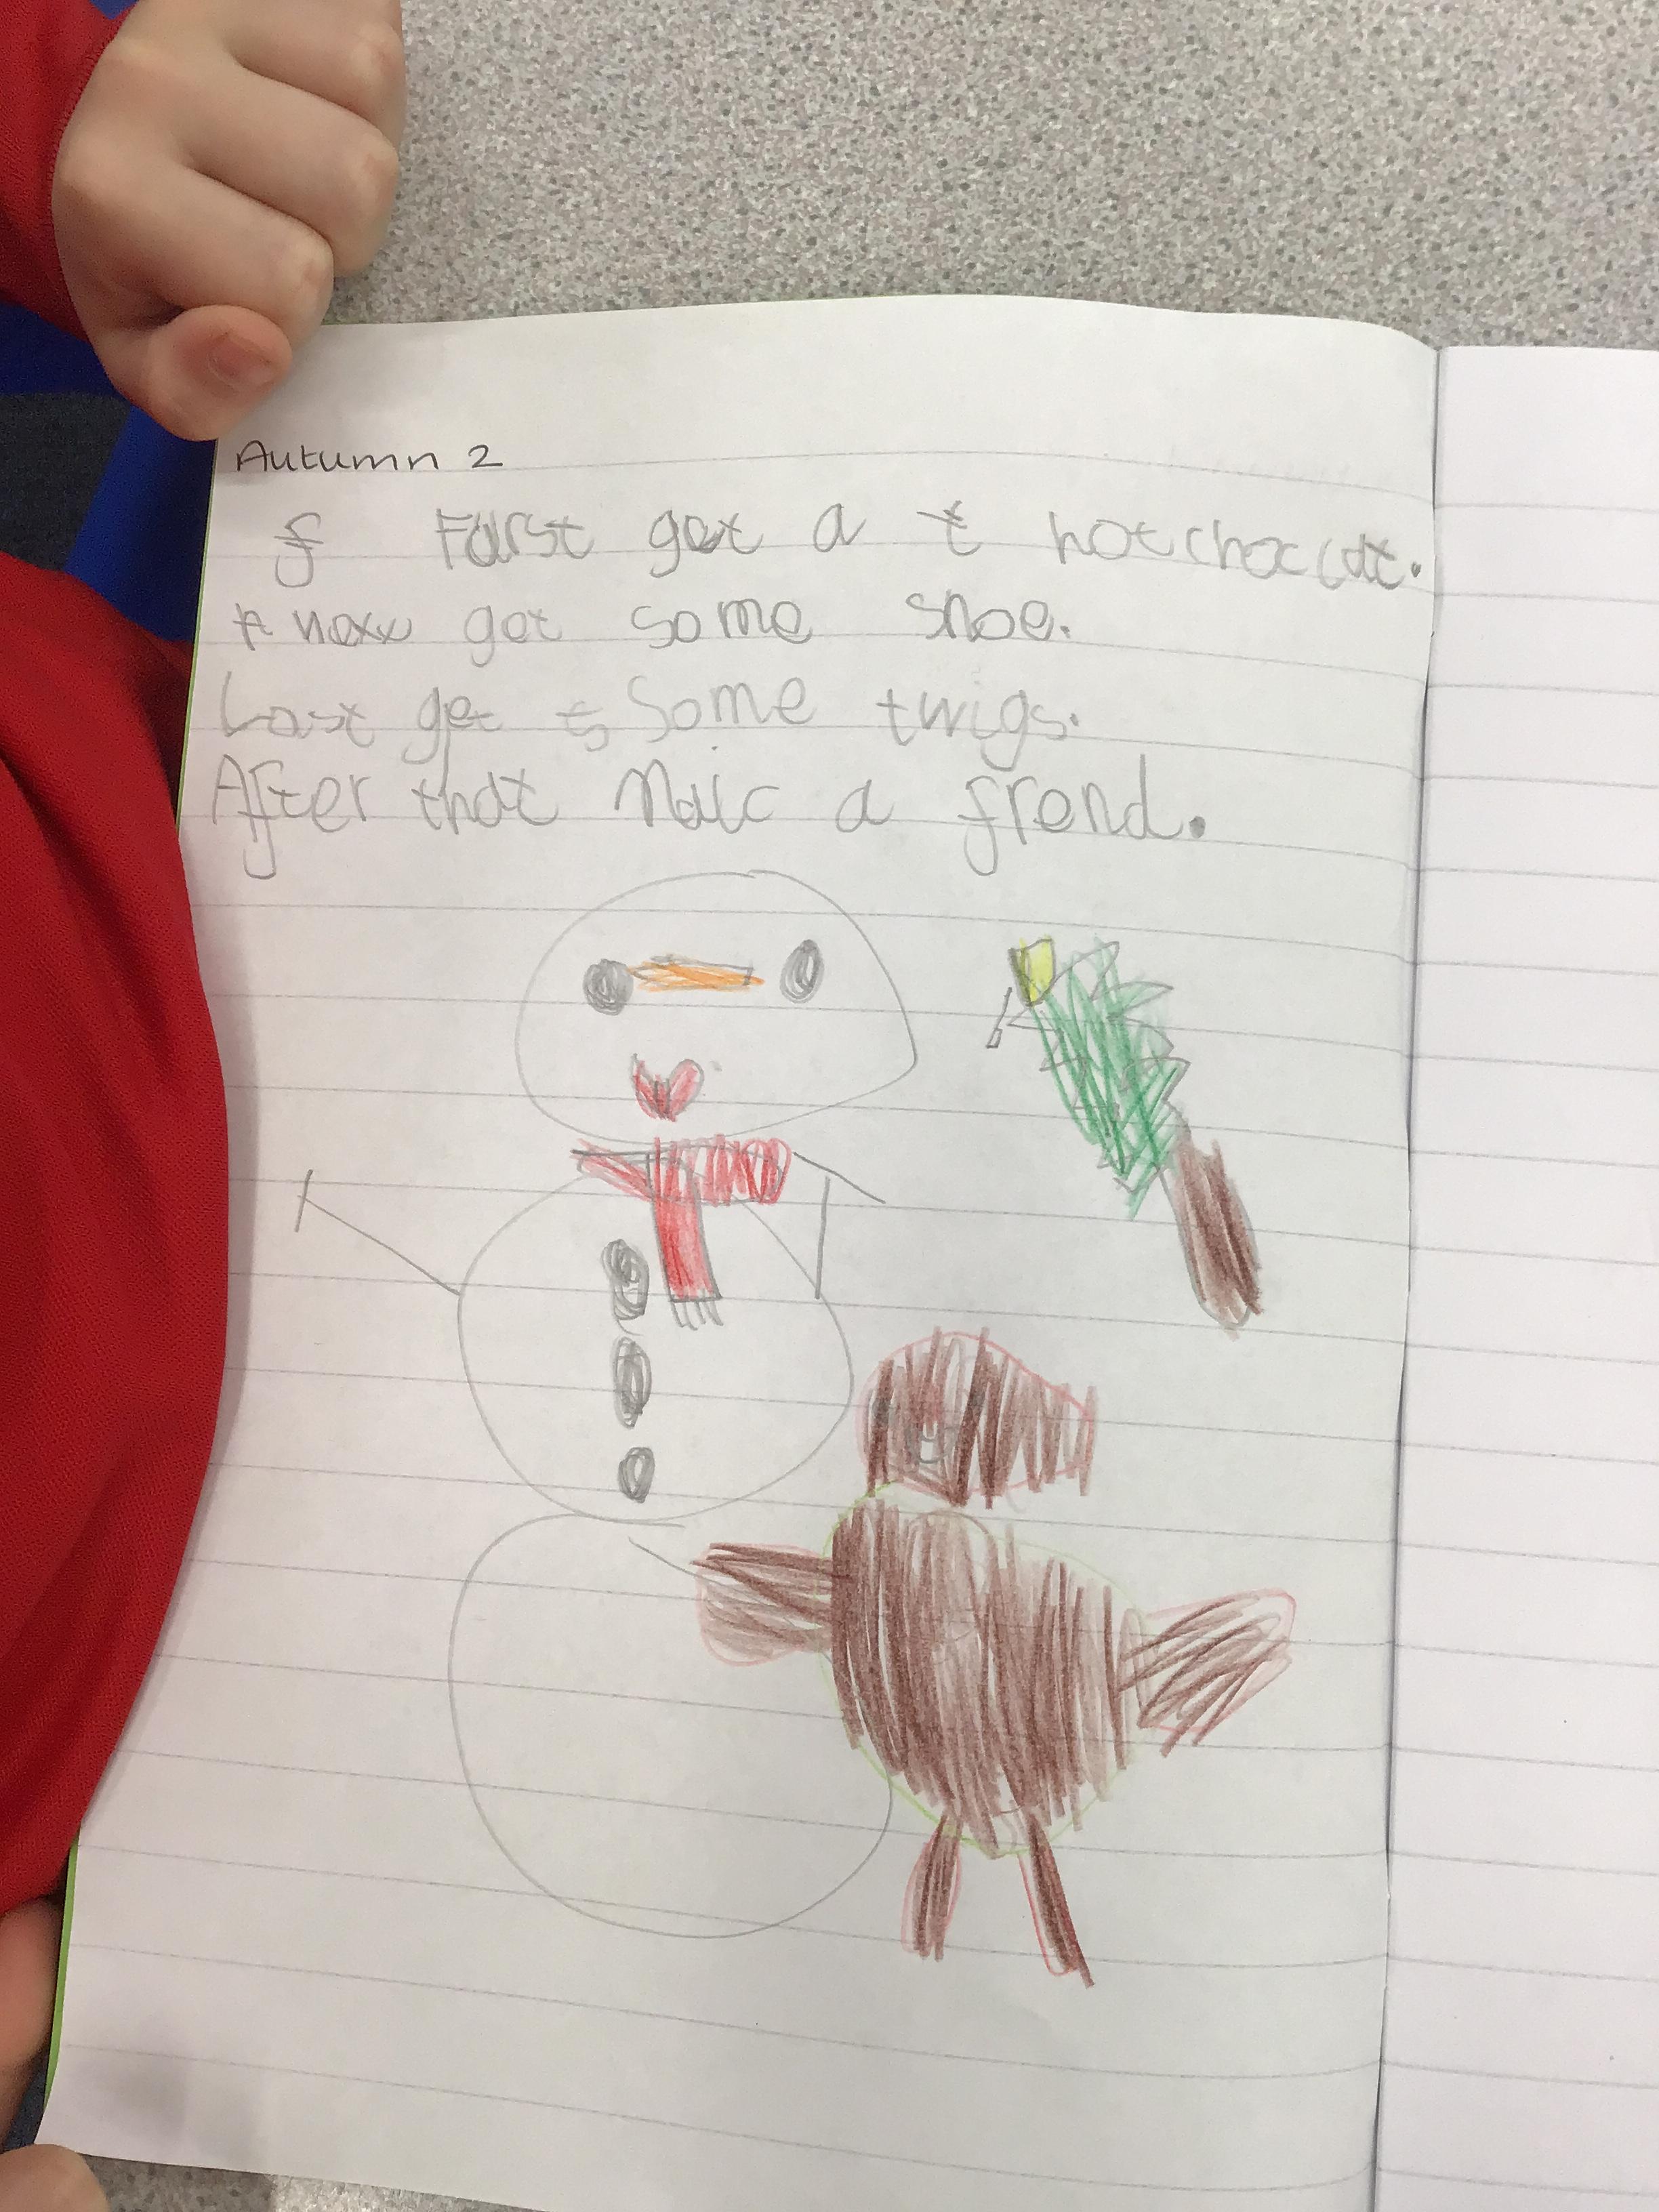 Autumn 2
f Farst get a t hotchoclat.
n next get some snoe.
Last get s some twigs.
After that Maic a frend.